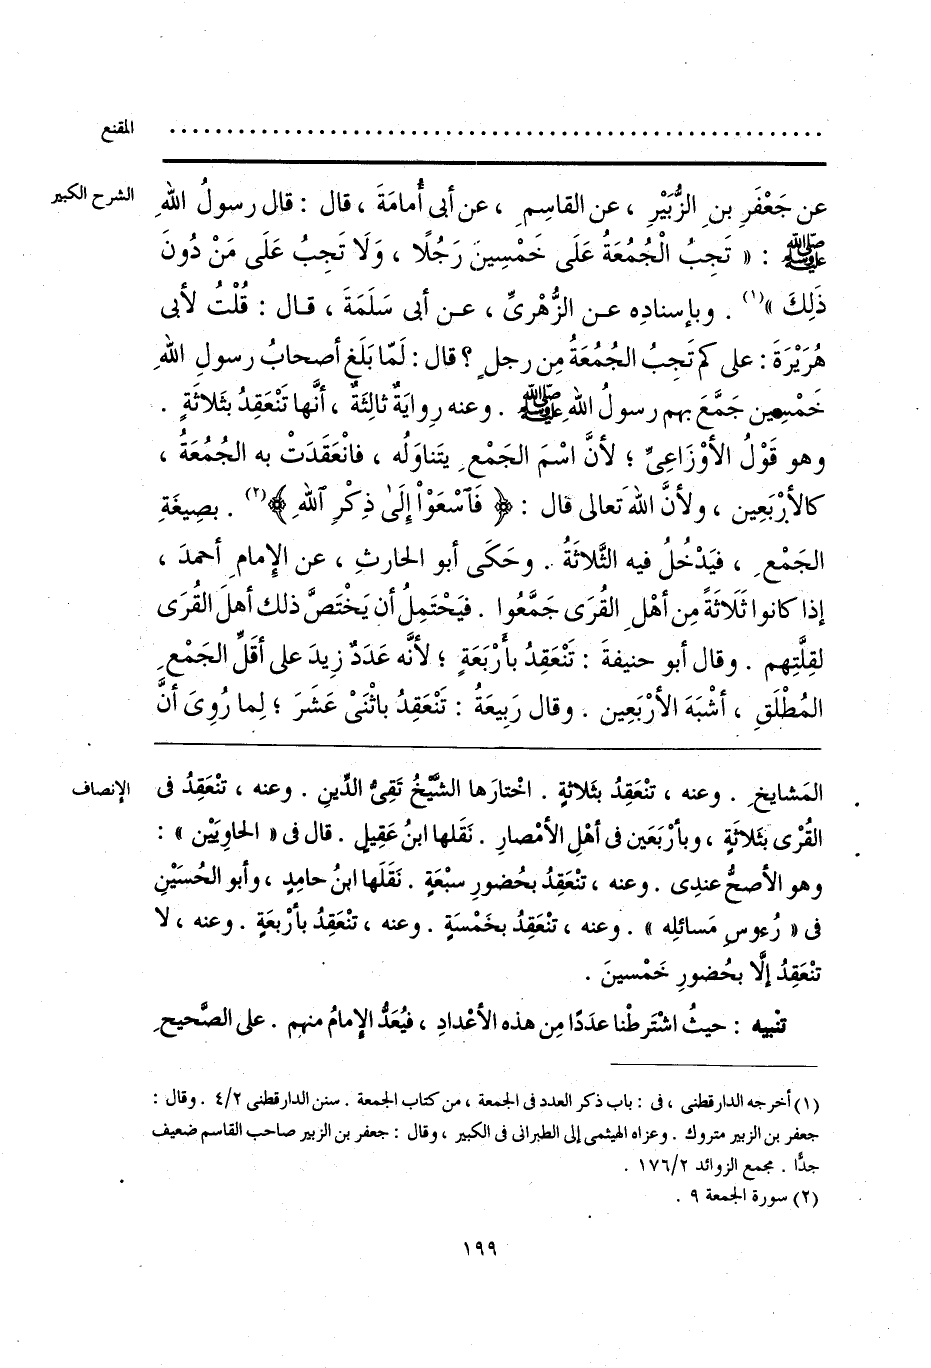 المقنع ..........................................................
الشرح الكبير
عن جَعْفَرِ بنِ الزُّبَيْرِ ، عن القاسِمِ ، عن أبى أُمامَةَ ، قال : قال رسولُ اللهِ
ﷺ : « تَجِبُ الْجُمُعَةُ عَلَى خَمْسِينَ رَجُلًا ، وَلَا تَجِبُ عَلَى مَنْ دُونَ
ذَلِكَ »(١) . وبإسنادِه عن الزُّهْرِىِّ ، عن أبى سَلَمَةَ ، قال : قُلْتُ لأبى
هُرَيْرَةَ : على كم تَجِبُ الجُمُعَةُ مِن رجلٍ ؟ قال : لَمّا بَلَغ أصحابُ رسولِ اللهِ
خَمْسِين جَمَّعَ بهم رسولُ اللهِ ﷺ . وعنه رِوايَةٌ ثالِثَةٌ ، أنَّها تَنْعَقِدُ بثَلاثَةٍ .
وهو قَوْلُ الأوْزَاعِىِّ ؛ لأنَّ اسْمَ الجَمْعِ يتَناوَلُه ، فانْعَقَدَتْ به الجُمُعَةُ ،
كالأرْبَعِين ، ولأنَّ اللهَ تعالى قال : ﴿ فَٱسْعَوْا۟ إِلَىٰ ذِكْرِ ٱللهِ ﴾(٢) . بصِيغَةِ
الجَمْعِ ، فيَدْخُلُ فيه الثَّلاثَةُ . وحَكَى أبو الحارثِ ، عن الإِمامِ أحمدَ ،
إذا كانوا ثَلَاثَةً مِن أهْلِ القُرَى جَمَّعُوا . فيَحْتَمِلُ أن يَخْتَصَّ ذلك أهلَ القُرَى
لقِلَّتِهم . وقال أبو حنيفةَ : تَنْعَقِدُ بأرْبَعَةٍ ؛ لأنَّه عَدَدٌ زِيدَ على أقَلِّ الجَمْعِ
المُطْلَقِ ، أشْبَهَ الأرْبَعِين . وقال رَبِيعَةُ : تَنْعَقِدُ باثْنَىْ عَشَرَ ؛ لِما رُوِىَ أنَّ
الإنصاف
المَشايخِ . وعنه ، تنْعَقِدُ بثَلاثةٍ . اخْتارَها الشَّيْخُ تَقِىُّ الدِّينِ . وعنه ، تنْعَقِدُ فى
القُرْى بثَلاثَةٍ ، وبأرْبَعَين فى أهْلِ الأمْصارِ . نَقَلها ابنُ عَقِيلٍ . قال فى « الحاوِيَيْن » :
وهو الأصحُّ عندِى . وعنه ، تنْعَقِدُ بحُضورِ سبْعَةٍ . نَقَلَها ابنُ حامِدٍ ، وأبو الحُسَيْنِ
فى « رُءوسِ مَسائلِه » . وعنه ، تنْعَقِدُ بخَمْسَةٍ . وعنه ، تنْعَقِدُ بأرْبعَةٍ . وعنه ، لا
تنْعَقِدُ إلَّا بحُضورِ خَمْسينَ .
تنْبيه : حيثُ اشْتَرطْنا عدَدًا مِن هذه الأعْدادِ ، فيُعَدُّ الإِمامُ منهم . على الصَّحيحِ
(١) أخرجه الدارقطنى ، فى : باب ذكر العدد فى الجمعة ، من كتاب الجمعة . سنن الدارقطنى ٤/٢ . وقال :
جعفر بن الزبير متروك . وعزاه الهيثمى إلى الطبرانى فى الكبير ، وقال : جعفر بن الزبير صاحب القاسم ضعيف
جدًّا . مجمع الزوائد ١٧٦/٢ .
(٢) سورة الجمعة ٩ .
١٩٩